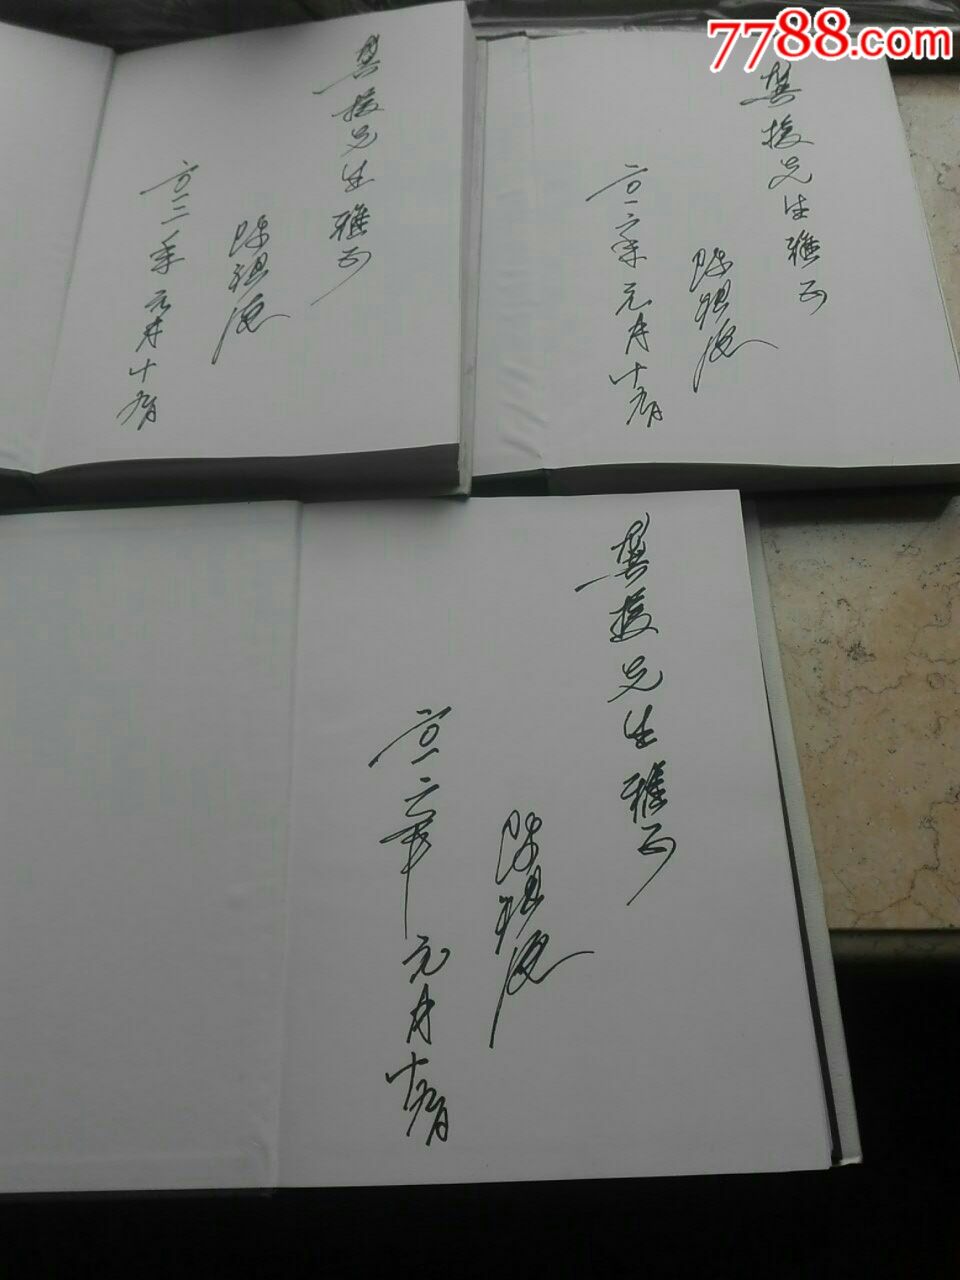 7788.com
樊接先生雅正
陈祖德
二〇一二年元月十九日
樊接先生雅正
陈祖德
二〇一二年元月十九日
樊接先生雅正
陈祖德
二〇一二年元月十九日